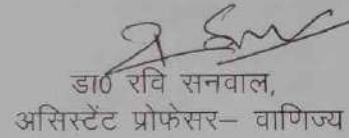 डा0 रवि सनवाल,
असिस्टेंट प्रोफेसर– वाणिज्य